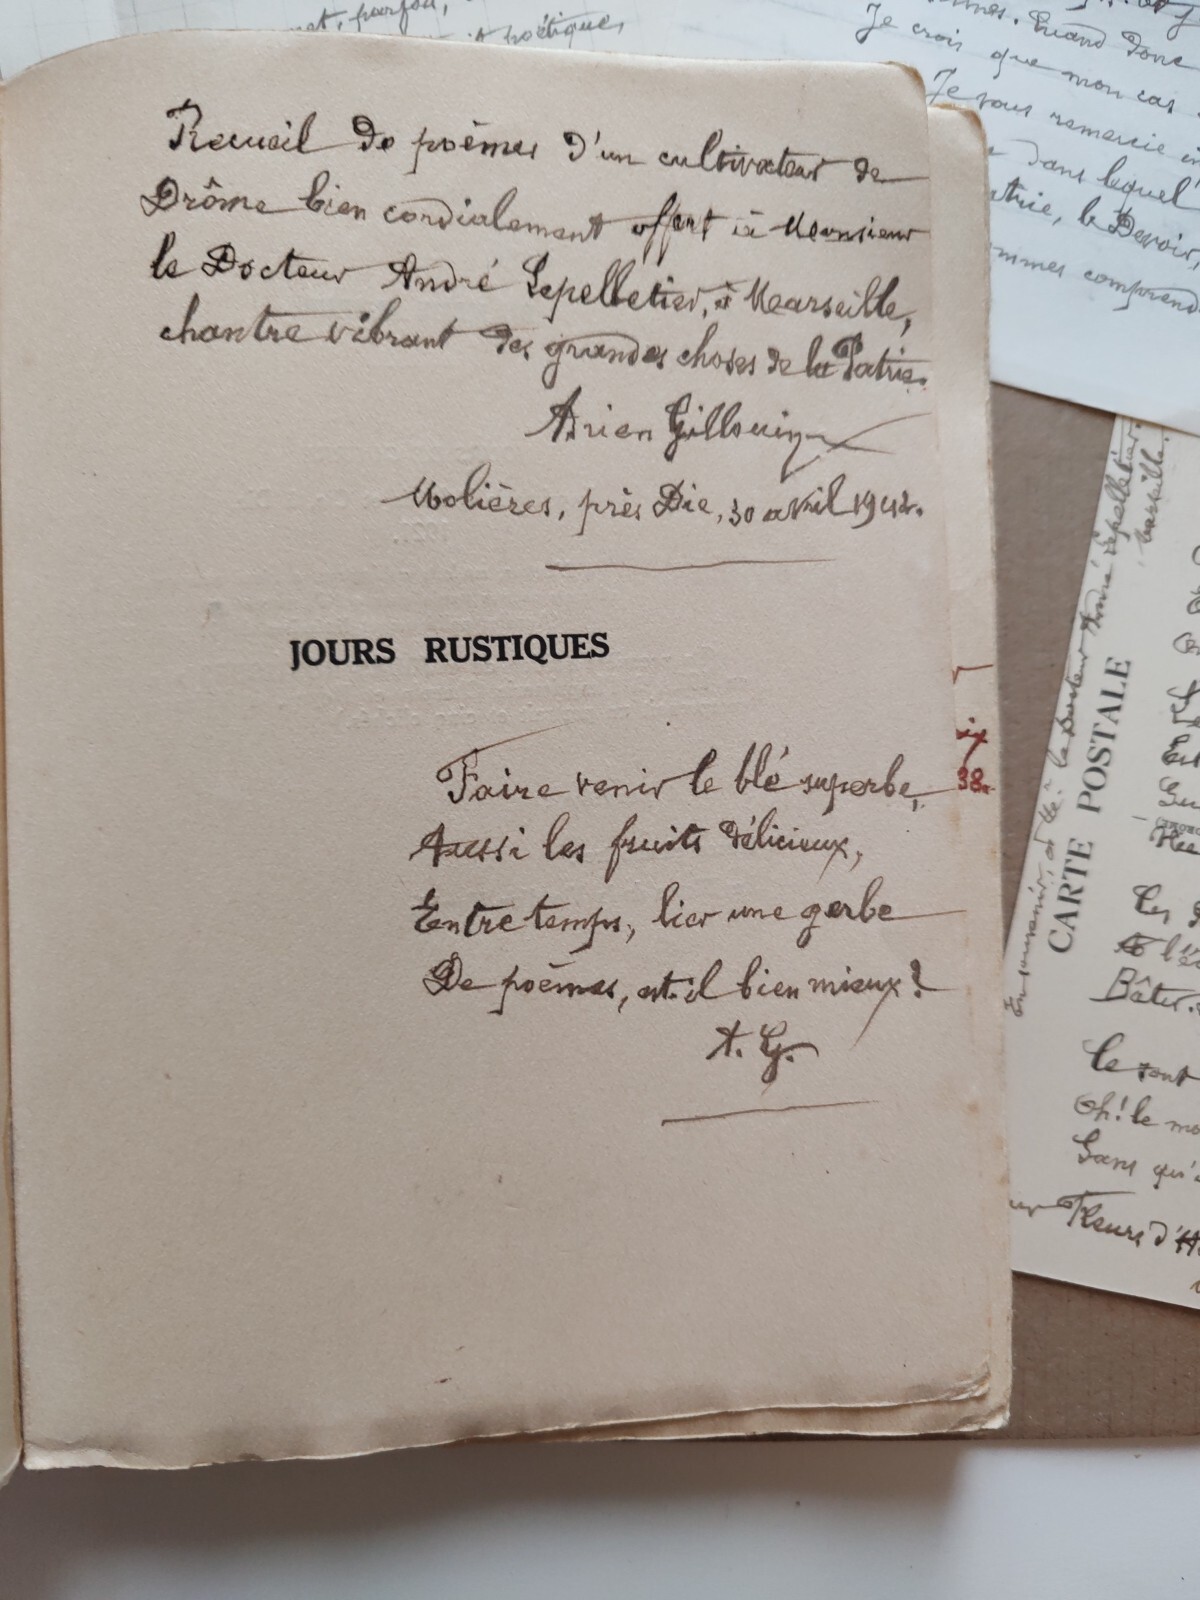 Recueil de poèmes d'un cultivateur de
Drôme bien cordialement offert à Monsieur
le Docteur André Lepelletier, à Marseille,
chantre vibrant des grandes choses de la Patrie.
Adrien Gillouin
Molières, près Die, 30 avril 1942.
JOURS RUSTIQUES
Faire venir le blé superbe,
Aussi les fruits délicieux,
Entre temps, lier une gerbe
De poèmes, est-il bien mieux?
A. G.
parfois,
poétiques
Quand donc
Je crois que mon cas
Je vous remercie
dans lequel
le Devoir,
38.
le Docteur André Lepelletier
Marseille.
CARTE POSTALE
Bâtir
Ce sont
Oh! le
Sans qu'
Fleurs d'